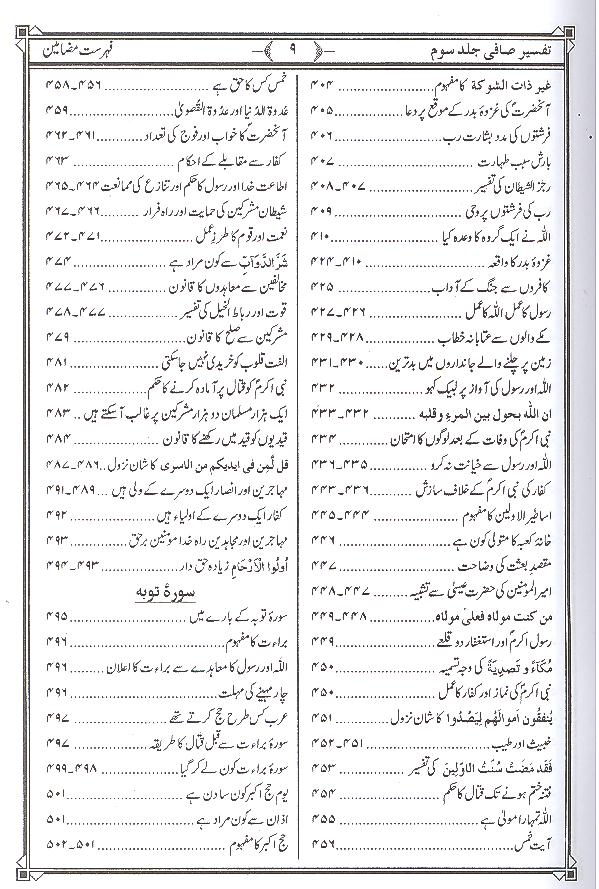 تفسیر صافی جلد سوم ۹ فہرست مضامین
غیر ذات الشوکة کا مفہوم ۴۰۴
آنحضرتؐ کی غزوۂ بدر کے موقع پر دعا ۴۰۵
فرشتوں کی مدد بشارت رب ۴۰۶
بارش سبب طہارت ۴۰۷
رجز الشیطان کی تفسیر ۴۰۷۔۴۰۸
رب کی فرشتوں پر وحی ۴۰۹
اللہ نے ایک گروہ کا وعدہ کیا ۴۱۰
غزوۂ بدر کا واقعہ ۴۱۰۔۴۲۴
کافروں سے جنگ کے آداب ۴۲۵
رسول کا عمل اللہ کا عمل ۴۲۶۔۴۲۷
مکے والوں سے عتابانہ خطاب ۴۲۸۔۴۲۹
زمین پر چلنے والے جانداروں میں بدترین ۴۳۰۔۴۳۱
اللہ اور رسول کی آواز پر لبیک کہو ۴۳۲
ان اللّٰه یحول بین المرء و قلبه ۴۳۲۔۴۳۳
نبی اکرمؐ کی وفات کے بعد لوگوں کا امتحان ۴۳۴
اللہ اور رسول سے خیانت نہ کرو ۴۳۵۔۴۳۶
کفار کی نبی اکرمؐ کے خلاف سازش ۴۳۶۔۴۴۳
اساطیر الاولین کا مفہوم ۴۴۴۔۴۴۵
خانۂ کعبہ کا متولی کون ہے ۴۴۶
مقصد بعثت کی وضاحت ۴۴۷
امیر المومنین کی حضرت عیسیٰ سے تشبیہ ۴۴۷۔۴۴۸
من کنت مولاه فعلی مولاه ۴۴۸۔۴۴۹
رسول اکرمؐ اور استغفار دو قلعے ۴۴۹
مُكَآءً وَ تَصدِیَةً کی وجہ تسمیہ ۴۵۰
نبی اکرمؐ کی نماز اور کفار کا عمل ۴۵۰
یُنفِقُون اَموالَهُم لِیَصُدُّوا کا شان نزول ۴۵۱
خبیث اور طیب ۴۵۱۔۴۵۲
فَقَد مَضَتْ سُنَّتُ الْاَوَّلِینَ کی تفسیر ۴۵۳
فتنہ ختم ہونے تک قتال کا حکم ۴۵۴
اللہ تمہارا مولیٰ ہے ۴۵۵
آیت خمس ۴۵۶
خمس کس کا حق ہے ۴۵۶۔۴۵۸
عُدوة الدُنیا اور عدُوة القُصویٰ ۴۵۹
آنحضرتؐ کا خواب اور فوج کی تعداد ۴۶۱۔۴۶۲
کفار سے مقابلے کے احکام ۴۶۳
اطاعت خدا اور رسول کا حکم اور تنازع کی ممانعت ۴۶۴۔۴۶۵
شیطان مشرکین کی حمایت اور راہ فرار ۴۶۶۔۴۶۷
نعمت اور قوم کا طرزِ عمل ۴۷۱۔۴۷۲
شَرَّ الدَّوَآبِّ سے کون مراد ہے ۴۷۴
مخالفین سے معاہدوں کا قانون ۴۷۶۔۴۷۷
قوت اور رباط الخیل کی تفسیر ۴۷۷۔۴۷۸
مشرکین سے صلح کا قانون ۴۷۹
الفت قلوب کو خریدی نہیں جا سکتی ۴۸۱
نبی اکرمؐ کو قتال پر آمادہ کرنے کا حکم ۴۸۲
ایک ہزار مسلمان دو ہزار مشرکین پر غالب آ سکتے ہیں ۴۸۳
قیدیوں کو قید میں رکھنے کا قانون ۴۸۴
قل لِّمن فی ایدیکم من الاسریٰ کا شان نزول ۴۸۶۔۴۸۷
مہاجرین اور انصار ایک دوسرے کے ولی ہیں ۴۸۹۔۴۹۱
کفار ایک دوسرے کے اولیاء ہیں ۴۹۲
مہاجرین اور مجاہدین راہ خدا مومنین برحق ۴۹۳
اُولُوا الْاَرْحَام زیادہ حق دار ۴۹۳۔۴۹۴
سورۂ توبہ
سورۂ توبہ کے بارے میں ۴۹۵
براءت کا مفہوم ۴۹۶
اللہ اور رسول کا معاہدے سے براءت کا اعلان ۴۹۶
چار مہینے کی مہلت ۴۹۶
عرب کس طرح حج کرتے تھے ۴۹۷
سورۂ براءت سے قبل قتال کا طریقہ ۴۹۷
سورۂ براءت کون لے کر گیا ۴۹۸۔۴۹۹
یوم حج اکبر کون سا دن ہے ۵۰۱
اذان سے کون مراد ہے ۵۰۱
حج اکبر کا مفہوم ۵۰۱۔۵۰۲